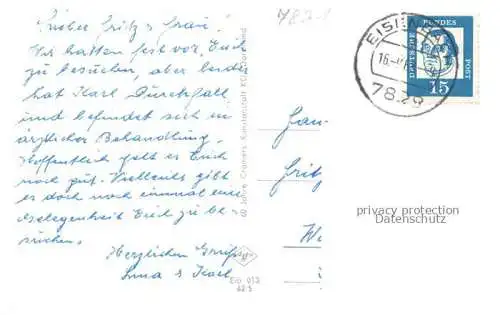 Lieber Fritz & Frau!
Wir hatten fest vor, Euch
zu besuchen, aber leider
hat Karl Durchfall
und befindet sich in
ärztlicher Behandlung.
Hoffentlich geht es Euch
noch gut. Vielleicht gibt
es doch noch einmal eine
Gelegenheit Euch zu be-
suchen.
Herzlichen Grüße
& Karl
782-1
60 Jahre Cramers Kunstanstalt KG, Dortmund
Eib 013
62 5
Fritz
DEUTSCHE
BUNDES
POST
15
7829
privacy protection
Datenschutz